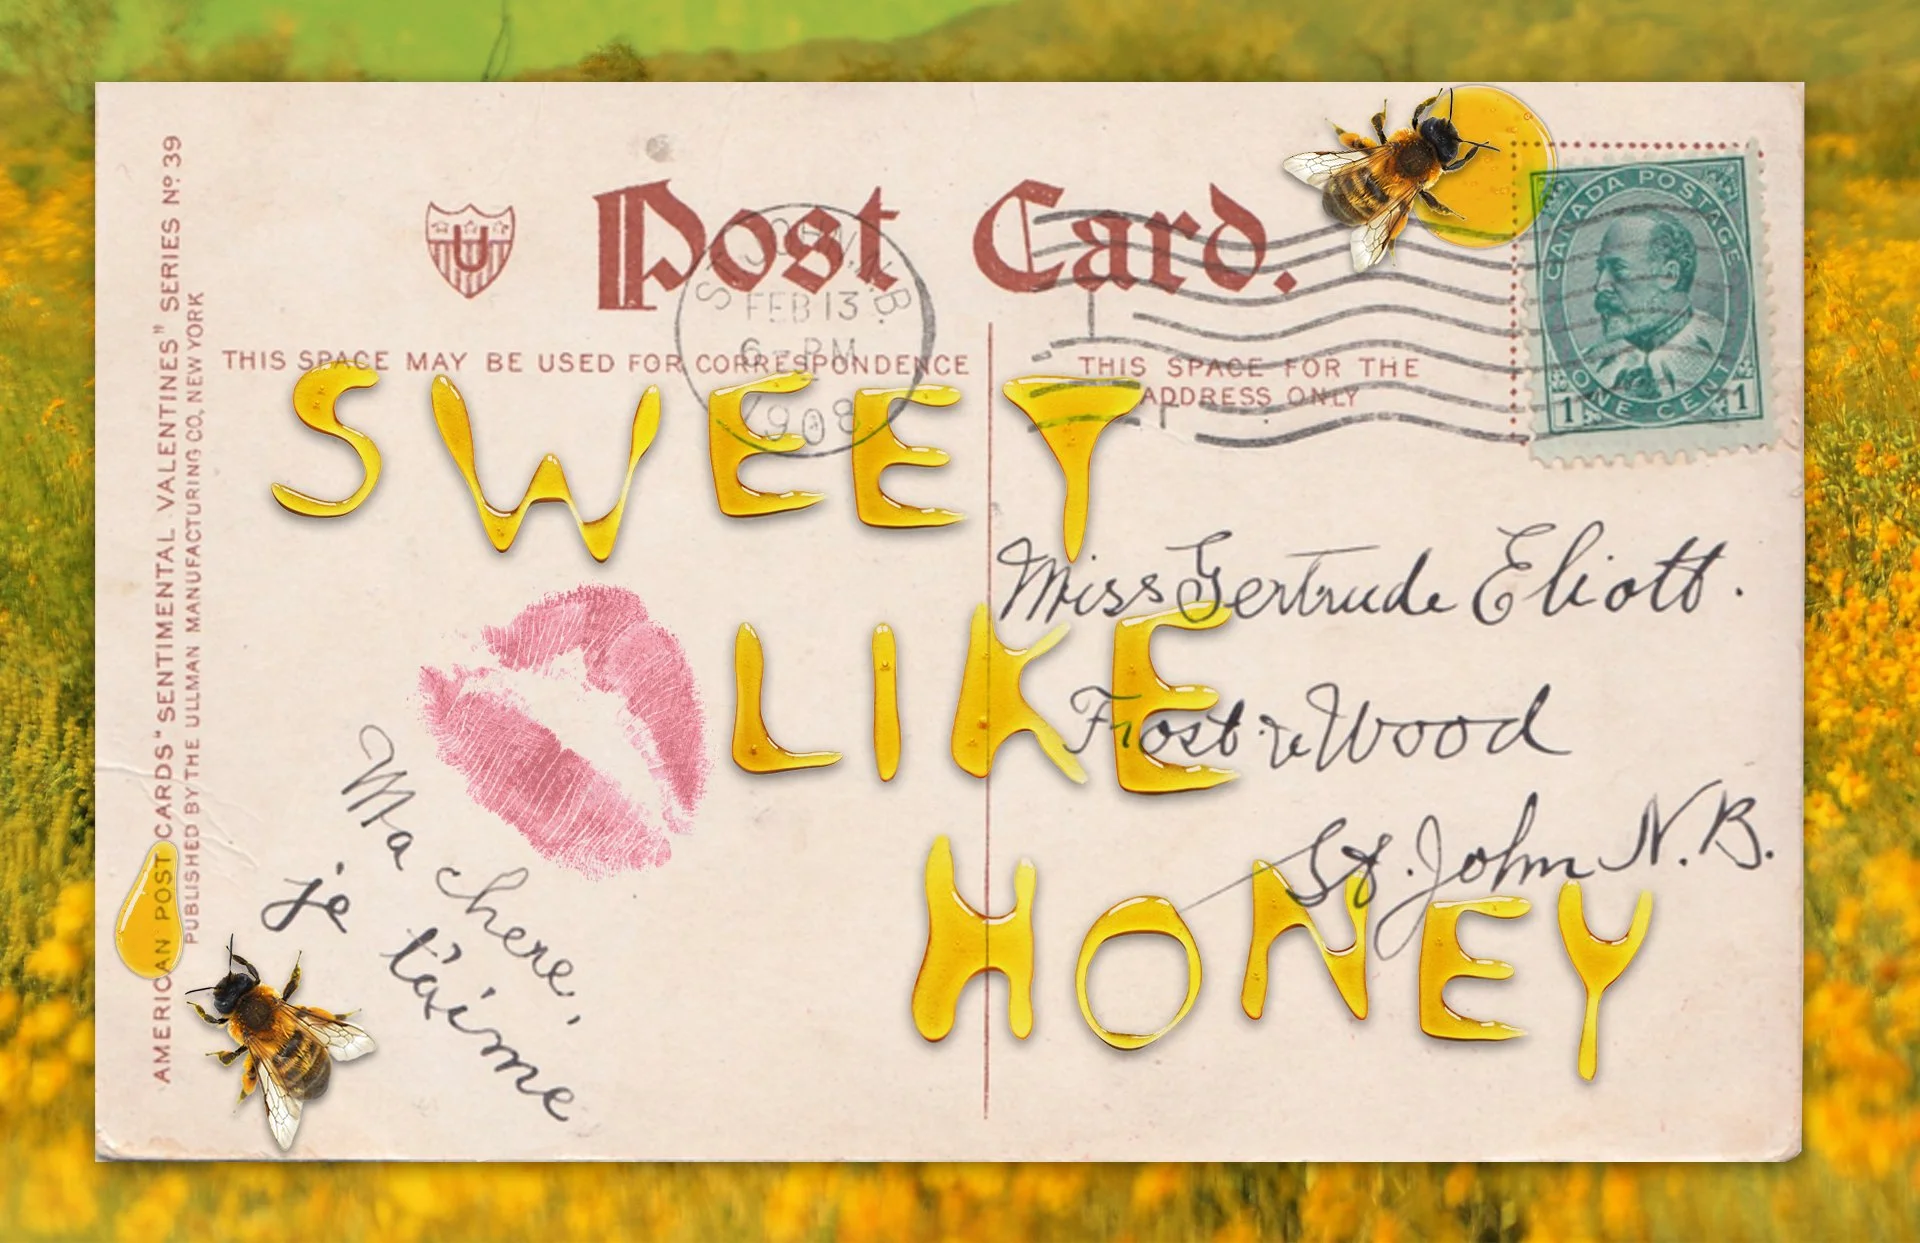 AMERICAN POST CARDS "SENTIMENTAL VALENTINES" SERIES No. 39
PUBLISHED BY THE ULLMAN MANUFACTURING CO, NEW YORK
U
Post Card.
ST JOHN, N.B.
FEB 13
6 - PM
1908
CANADA POSTAGE
1 ONE CENT 1
THIS SPACE MAY BE USED FOR CORRESPONDENCE
THIS SPACE FOR THE
ADDRESS ONLY
SWEET
LIKE
HONEY
Miss Gertrude Eliott.
Frost & Wood
St. John N.B.
Ma chere,
je t'aime